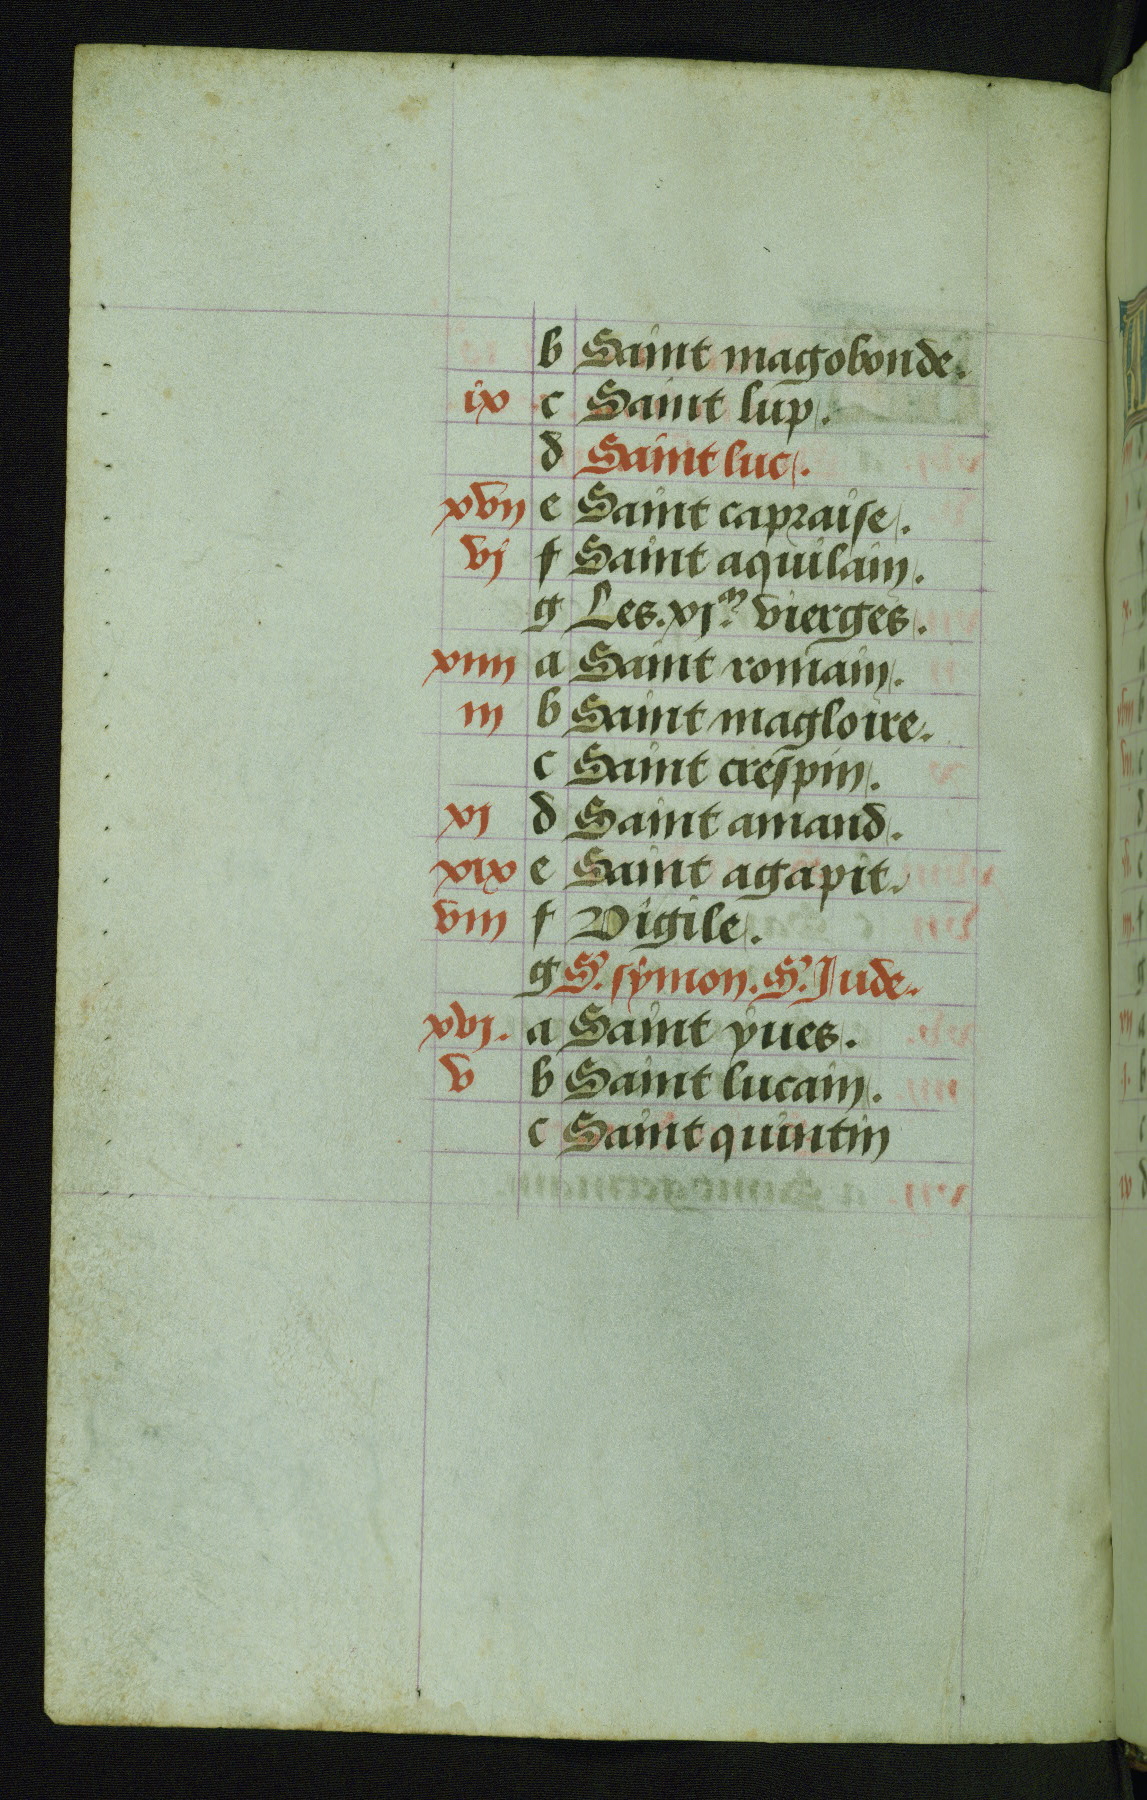 b Saint magobonde.
ix c Saint lup.
d Saint luc.
xvii e Saint capraise.
vi f Saint aquilain.
g Les .xi.m vierges.
xiiii a Saint romain.
iii b Saint magloire.
c Saint crespin.
xi d Saint amand.
xix e Saint agapit.
viii f Vigile.
g S. symon. S. Jude.
xvi. a Saint yues.
v b Saint lucain.
c Saint quintin